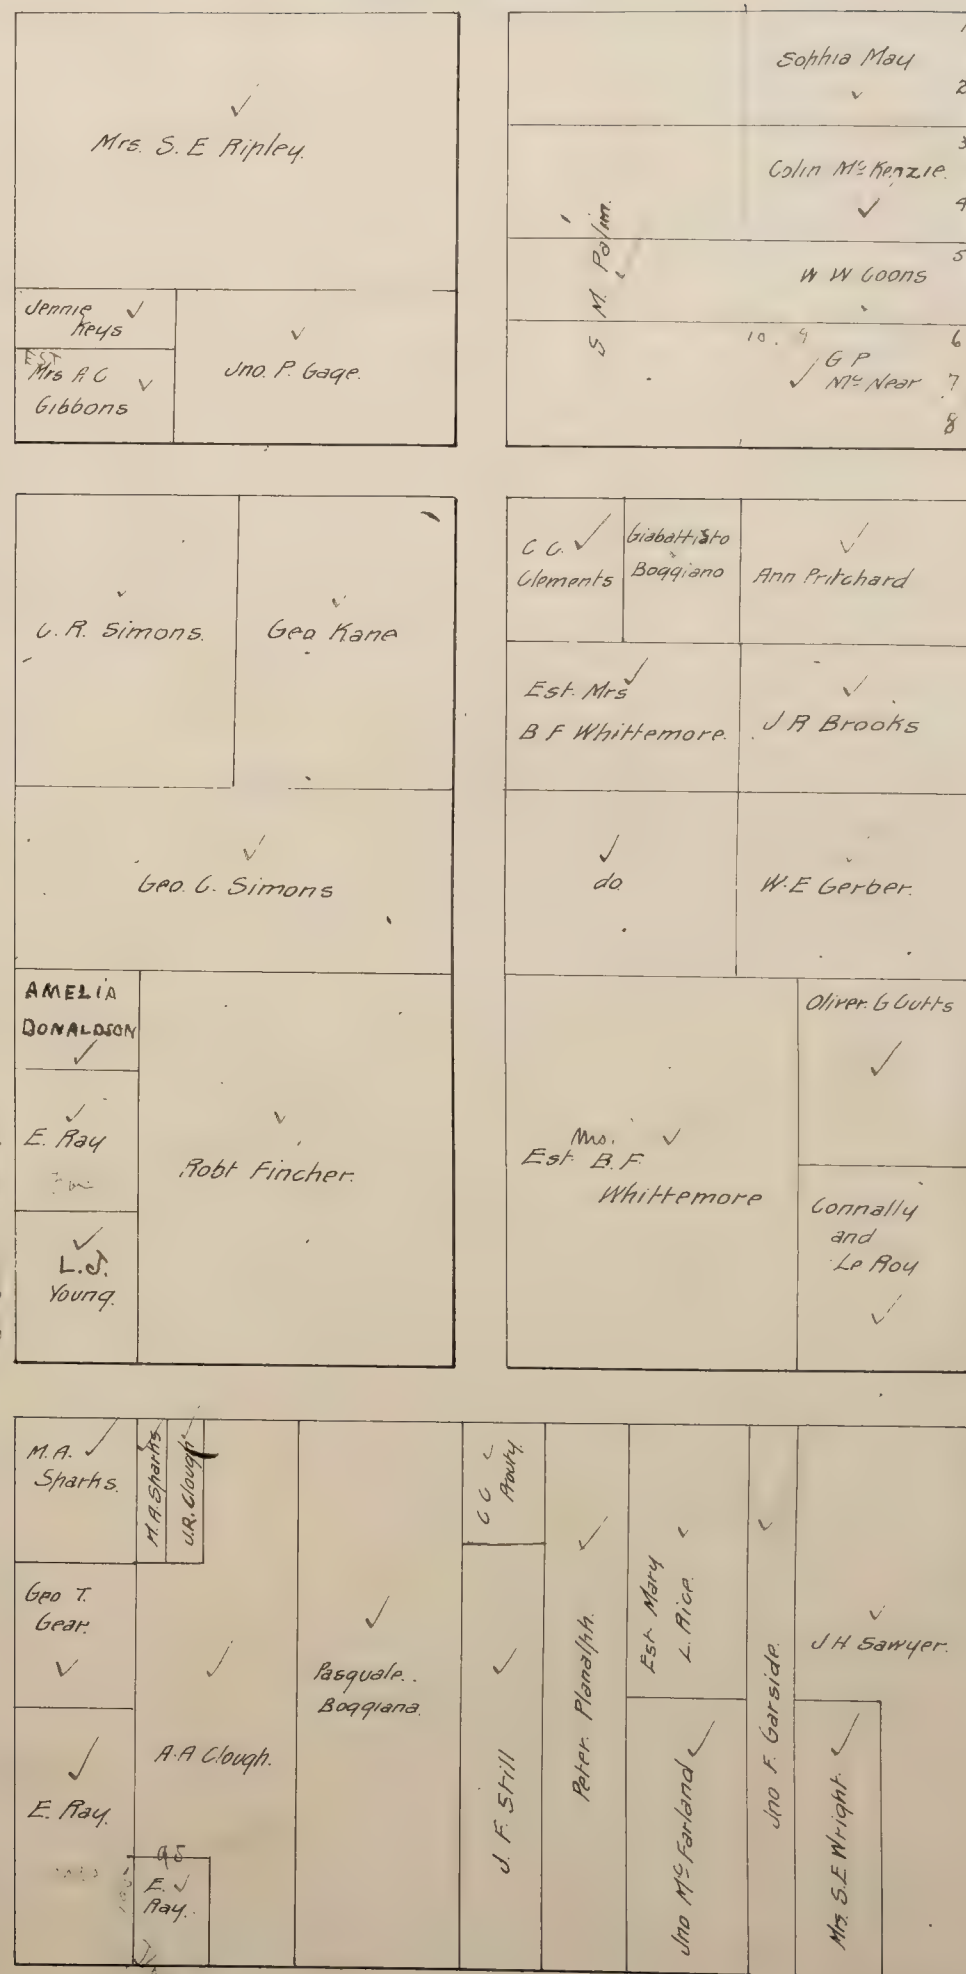 Mrs. S. E Ripley.
Jennie
Keys
EST
Mrs A C
Gibbons
Jno. P. Gage.
1
Sophia May
2
3
Colin Mc Kenzie.
4
5
W W Coons
S M. Palm.
10. 9
6
G P
Mc Near 7
8
C. R. Simons.
Geo Kane
Geo. C. Simons
AMELIA
DONALDSON
E. Ray
L.J.
Young.
Robt Fincher.
C C.
Clements
Giabattisto
Boggiano
Ann Pritchard
Est. Mrs
B F Whittemore.
J R Brooks
do
W. E Gerber.
Mrs.
Est. B. F.
Whittemore
Oliver. G Cutts
Connally
and
Le Roy
M. A.
Sharks.
M. A. Sharks
J.R. Clough
Geo T.
Gear.
E. Ray.
A. A Clough.
95
E.
Ray.
Pasquale..
Boggiana.
C C
Prouty.
J. F. Still
Peter. Planalph.
Est Mary
L. Rice.
Jno Mc Farland
Jno F. Garside.
J H Sawyer.
Mrs. S. E Wright.